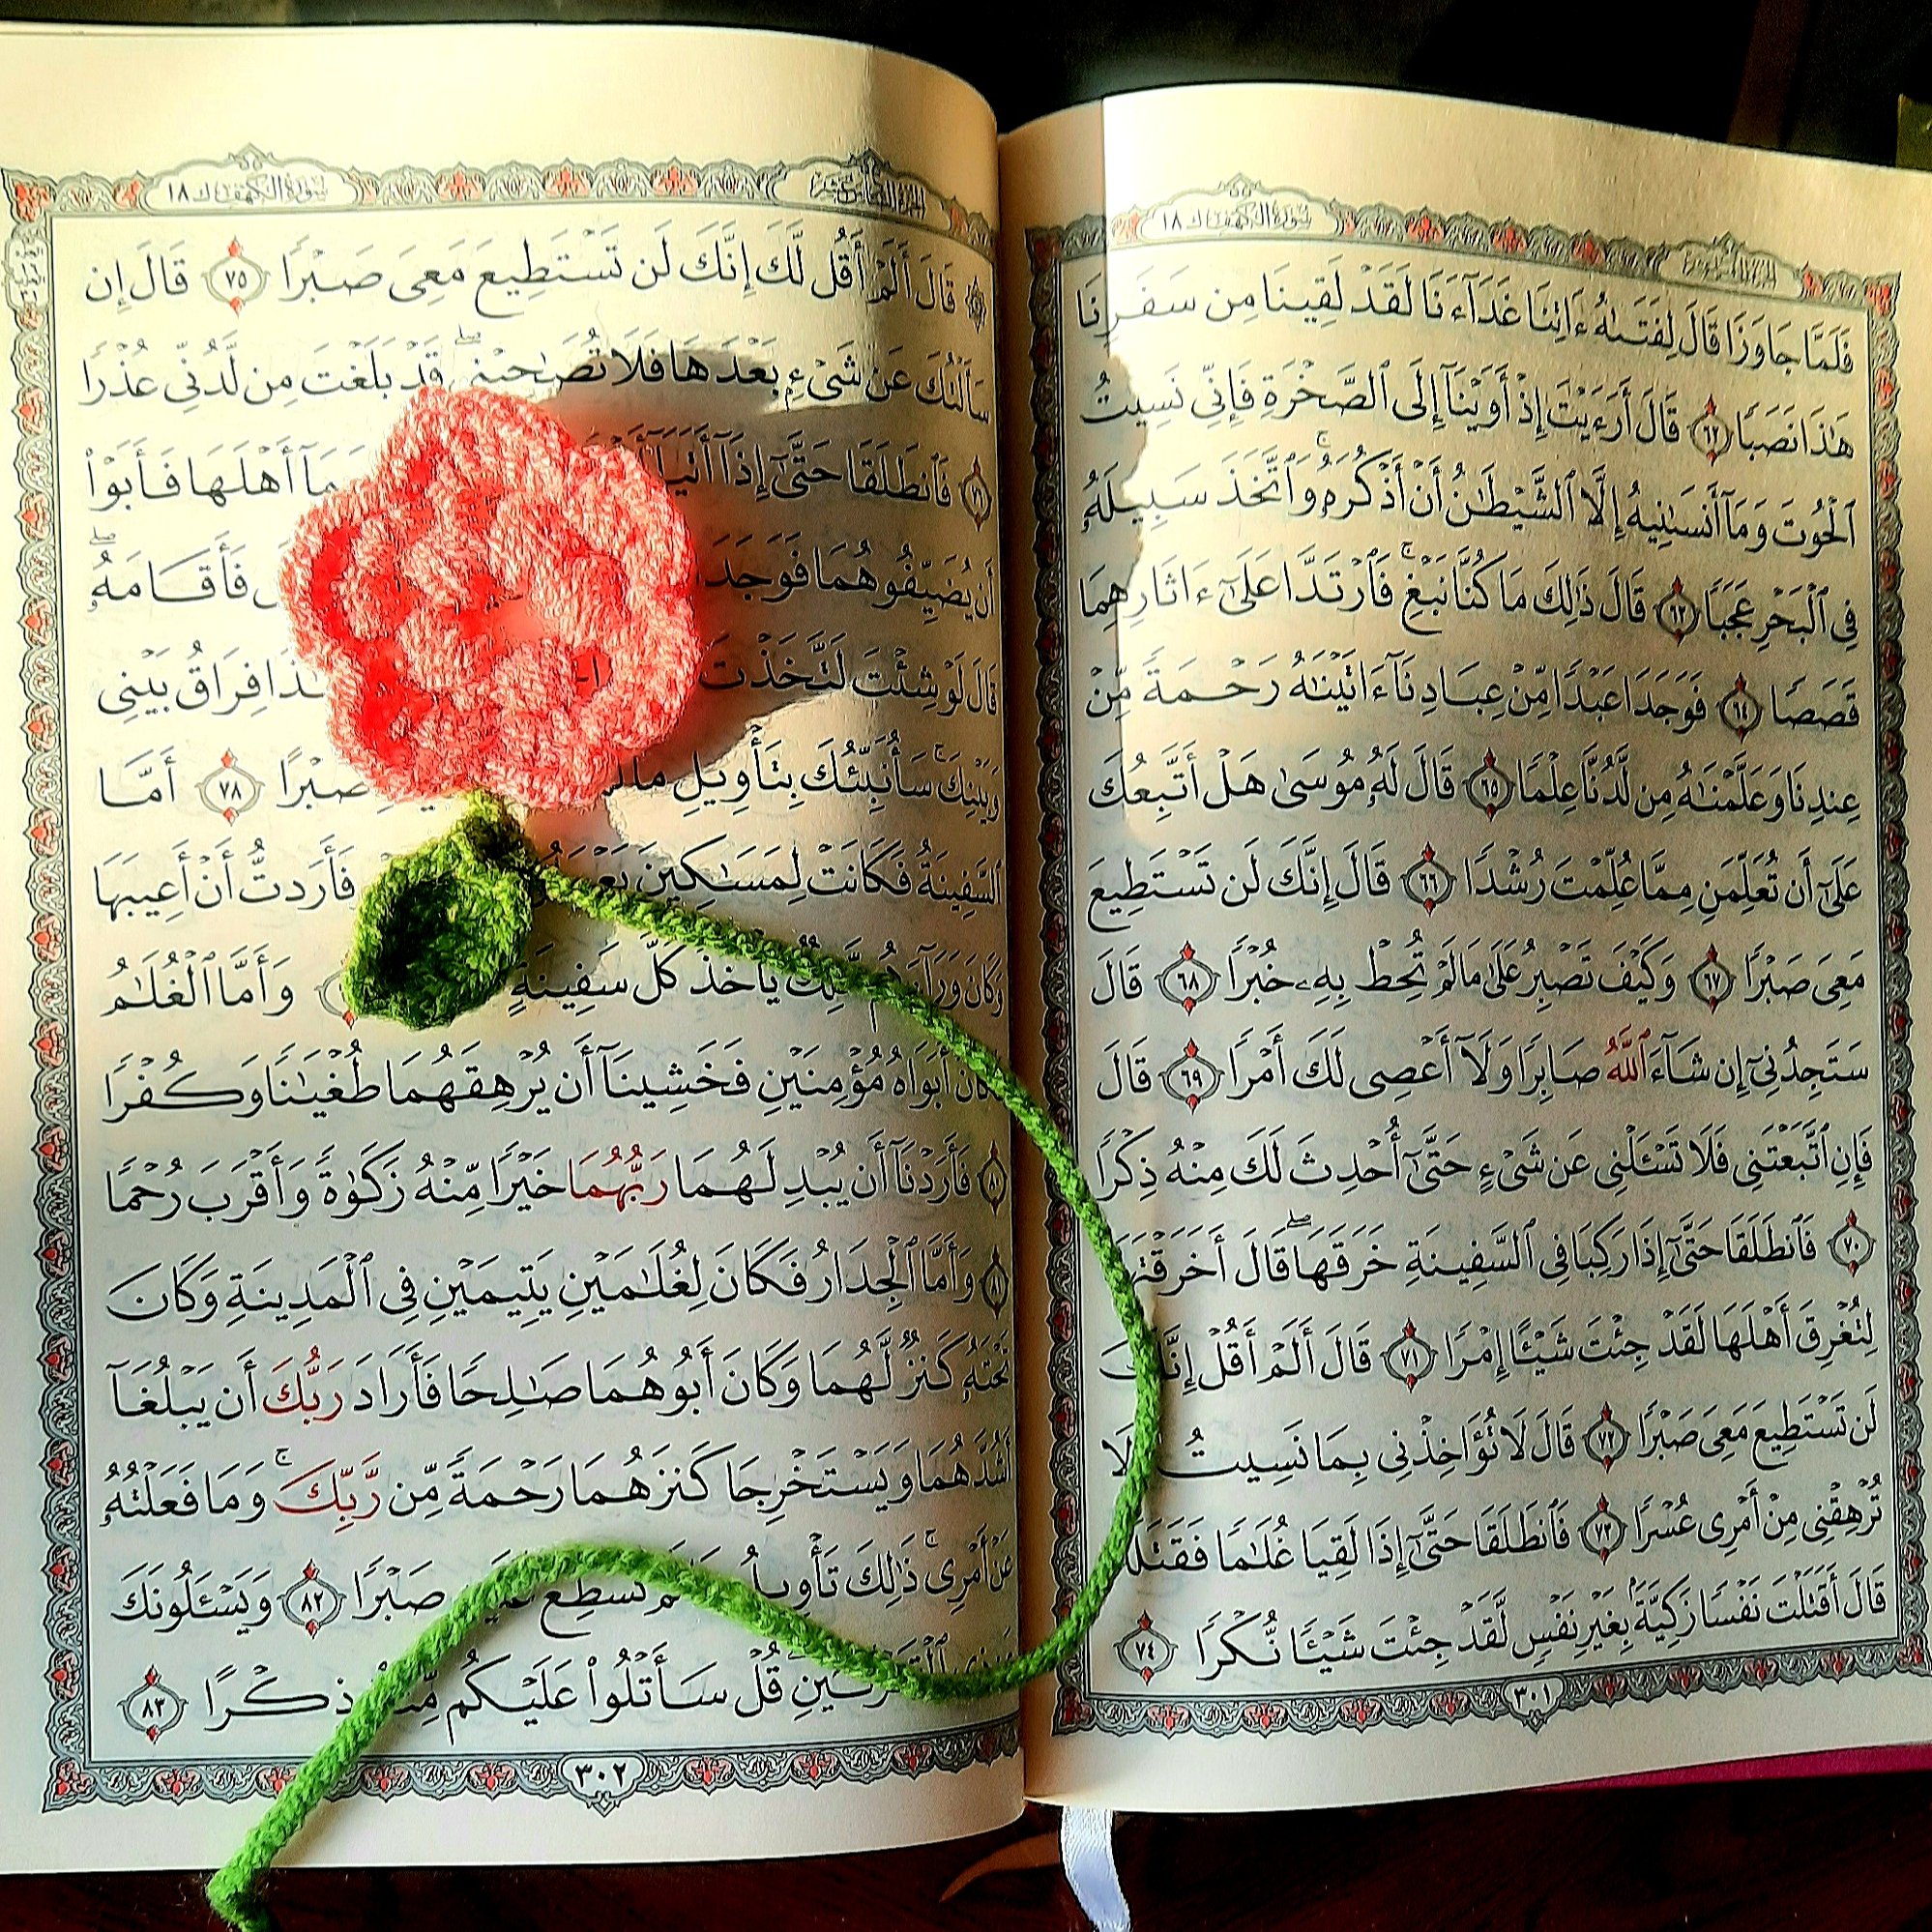 سورة الكهف ١٨
فَلَمَّا جَاوَزَا قَالَ لِفَتَىٰهُ ءَاتِنَا غَدَآءَنَا لَقَدْ لَقِينَا مِن سَفَرِنَا
هَٰذَا نَصَبًا ٦٢ قَالَ أَرَءَيْتَ إِذْ أَوَيْنَآ إِلَى ٱلصَّخْرَةِ فَإِنِّى نَسِيتُ
ٱلْحُوتَ وَمَآ أَنسَىٰنِيهُ إِلَّا ٱلشَّيْطَٰنُ أَنْ أَذْكُرَهُۥ ۚ وَٱتَّخَذَ سَبِيلَهُۥ
فِى ٱلْبَحْرِ عَجَبًا ٦٣ قَالَ ذَٰلِكَ مَا كُنَّا نَبْغِ ۚ فَٱرْتَدَّا عَلَىٰٓ ءَاثَارِهِمَا
قَصَصًا ٦٤ فَوَجَدَا عَبْدًا مِّنْ عِبَادِنَآ ءَاتَيْنَٰهُ رَحْمَةً مِّنْ
عِندِنَا وَعَلَّمْنَٰهُ مِن لَّدُنَّا عِلْمًا ٦٥ قَالَ لَهُۥ مُوسَىٰ هَلْ أَتَّبِعُكَ
عَلَىٰٓ أَن تُعَلِّمَنِ مِمَّا عُلِّمْتَ رُشْدًا ٦٦ قَالَ إِنَّكَ لَن تَسْتَطِيعَ
مَعِىَ صَبْرًا ٦٧ وَكَيْفَ تَصْبِرُ عَلَىٰ مَا لَمْ تُحِطْ بِهِۦ خُبْرًا ٦٨ قَالَ
سَتَجِدُنِىٓ إِن شَآءَ ٱللَّهُ صَابِرًا وَلَآ أَعْصِى لَكَ أَمْرًا ٦٩ قَالَ
فَإِنِ ٱتَّبَعْتَنِى فَلَا تَسْـَٔلْنِى عَن شَىْءٍ حَتَّىٰٓ أُحْدِثَ لَكَ مِنْهُ ذِكْرًا
٧٠ فَٱنطَلَقَا حَتَّىٰٓ إِذَا رَكِبَا فِى ٱلسَّفِينَةِ خَرَقَهَا ۖ قَالَ أَخَرَقْتَهَا
لِتُغْرِقَ أَهْلَهَا لَقَدْ جِئْتَ شَيْـًٔا إِمْرًا ٧١ قَالَ أَلَمْ أَقُلْ إِنَّكَ
لَن تَسْتَطِيعَ مَعِىَ صَبْرًا ٧٢ قَالَ لَا تُؤَاخِذْنِى بِمَا نَسِيتُ وَلَا
تُرْهِقْنِى مِنْ أَمْرِى عُسْرًا ٧٣ فَٱنطَلَقَا حَتَّىٰٓ إِذَا لَقِيَا غُلَٰمًا فَقَتَلَهُۥ
قَالَ أَقَتَلْتَ نَفْسًا زَكِيَّةًۢ بِغَيْرِ نَفْسٍ لَّقَدْ جِئْتَ شَيْـًٔا نُّكْرًا ٧٤
٣٠١
سورة الكهف ١٨
۞ قَالَ أَلَمْ أَقُل لَّكَ إِنَّكَ لَن تَسْتَطِيعَ مَعِىَ صَبْرًا ٧٥ قَالَ إِن
سَأَلْتُكَ عَن شَىْءٍۭ بَعْدَهَا فَلَا تُصَٰحِبْنِى ۖ قَدْ بَلَغْتَ مِن لَّدُنِّى عُذْرًا
٧٦ فَٱنطَلَقَا حَتَّىٰٓ إِذَآ أَتَيَآ أَهْلَهَا فَأَبَوْا۟
أَن يُضَيِّفُوهُمَا فَوَجَدَا فَأَقَامَهُۥ ۖ
قَالَ لَوْ شِئْتَ لَتَّخَذْتَ هَٰذَا فِرَاقُ بَيْنِى
وَبَيْنِكَ ۚ سَأُنَبِّئُكَ بِتَأْوِيلِ صَبْرًا ٧٨ أَمَّا
ٱلسَّفِينَةُ فَكَانَتْ لِمَسَٰكِينَ فَأَرَدتُّ أَنْ أَعِيبَهَا
وَكَانَ وَرَآءَهُم مَّلِكٌ يَأْخُذُ كُلَّ سَفِينَةٍ وَأَمَّا ٱلْغُلَٰمُ
فَكَانَ أَبَوَاهُ مُؤْمِنَيْنِ فَخَشِينَآ أَن يُرْهِقَهُمَا طُغْيَٰنًا وَكُفْرًا
٨٠ فَأَرَدْنَآ أَن يُبْدِلَهُمَا رَبُّهُمَا خَيْرًا مِّنْهُ زَكَوٰةً وَأَقْرَبَ رُحْمًا
٨١ وَأَمَّا ٱلْجِدَارُ فَكَانَ لِغُلَٰمَيْنِ يَتِيمَيْنِ فِى ٱلْمَدِينَةِ وَكَانَ
تَحْتَهُۥ كَنزٌ لَّهُمَا وَكَانَ أَبُوهُمَا صَٰلِحًا فَأَرَادَ رَبُّكَ أَن يَبْلُغَآ
أَشُدَّهُمَا وَيَسْتَخْرِجَا كَنزَهُمَا رَحْمَةً مِّن رَّبِّكَ ۚ وَمَا فَعَلْتُهُۥ
عَنْ أَمْرِى ۚ ذَٰلِكَ تَأْوِيلُ تَسْطِع صَبْرًا ٨٢ وَيَسْـَٔلُونَكَ
قُلْ سَأَتْلُوا۟ عَلَيْكُم مِّنْهُ ذِكْرًا ٨٣
٣٠٢